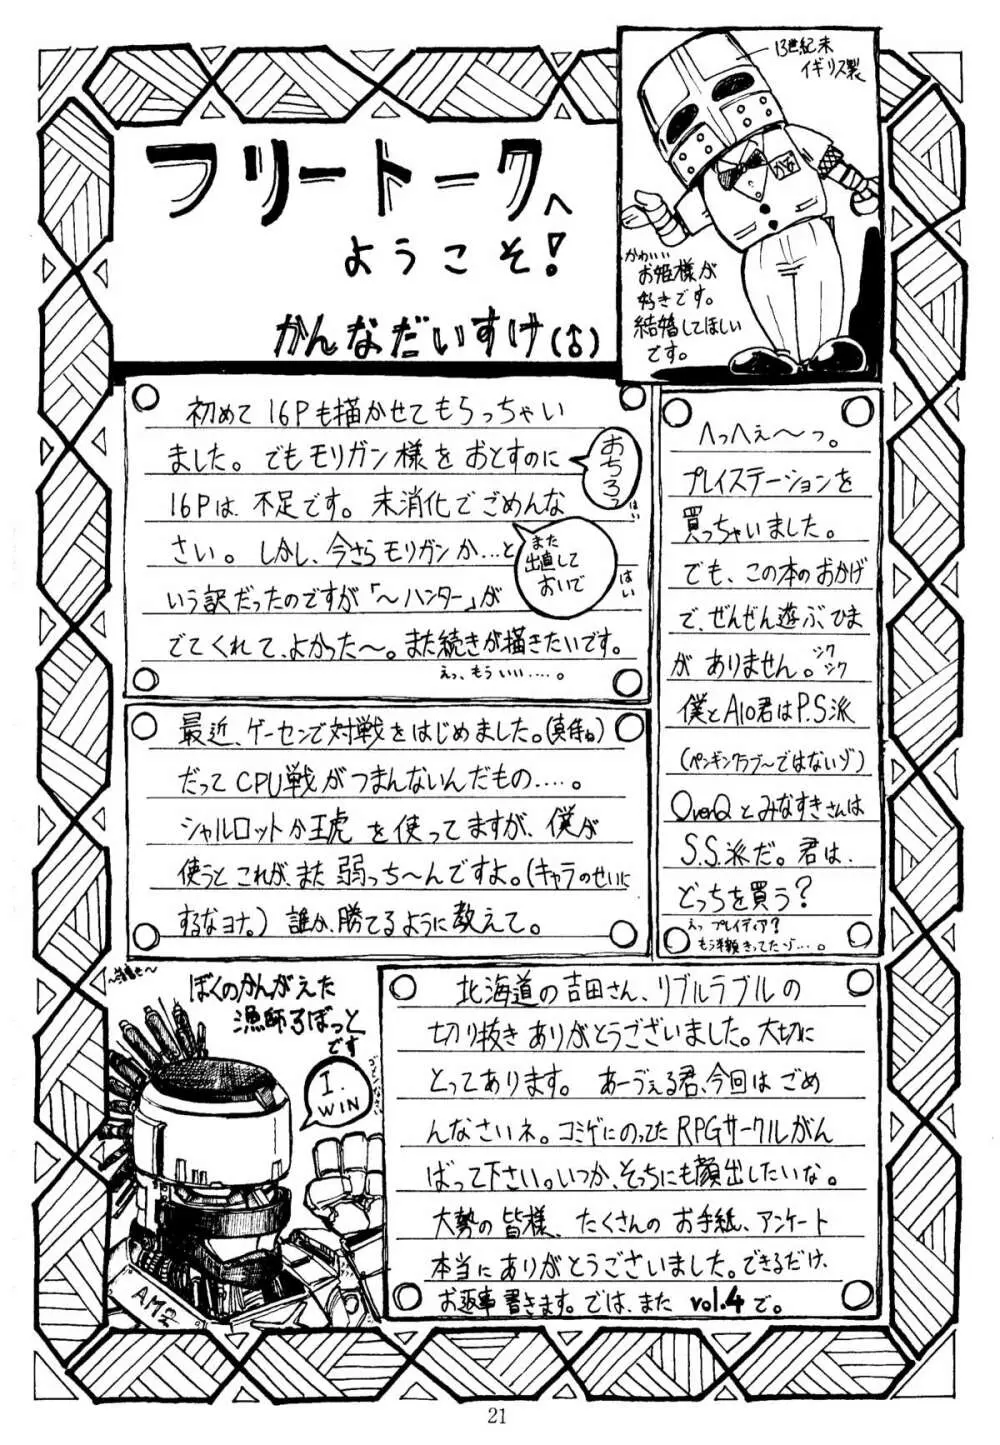 フリートークへ
ようこそ!
かんなだいすけ(♂)
13世紀末
イギリス製
かわいい
お姫様が
好きです。
結婚してほしい
です。
初めて16Pも描かせてもらっちゃい
ました。でもモリガン様をおとすのに
16Pは不足です。未消化でごめんな
さい。しかし、今さらモリガンか…と
いう訳だったのですが「〜ハンター」が
でてくれて、よかった〜。また続きが描きたいです。
えっ、もういい……。
おちろ
はい
また
出直して
おいで
はい
へっへぇ〜っ。
プレイステーションを
買っちゃいました。
でも、この本のおかげ
で、ぜんぜん遊ぶ、ひま
がありません。シクシク
僕とAlo君はP.S派
(ペンギンクラブ〜ではないゾ)
OverQとみなすきさんは
S.S.派だ。君は、
どっちを買う?
えっプレイディア?
もう半額きってたゾ…。
最近、ゲーセンで対戦をはじめました。
だってCPU戦がつまんないんだもの……。
シャルロットか王虎を使ってますが、僕が
使うとこれが、また弱っち〜んですよ。(キャラのせいに
するなヨナ。)誰か、勝てるように教えて。
ぼくのかんがえた
漁師ろぼっと
です
I.
WIN
北海道の吉田さん、リブルラブルの
切り抜きありがとうございました。大切に
とってあります。あーゔぇる君、今回はごめ
んなさいネ。コミゲにのってたRPGサークルがん
ばって下さい。いつか、そっちにも顔出したいな。
大勢の皆様、たくさんのお手紙、アンケート
本当にありがとうございました。できるだけ、
お返事書きます。では、また vol.4で。
21